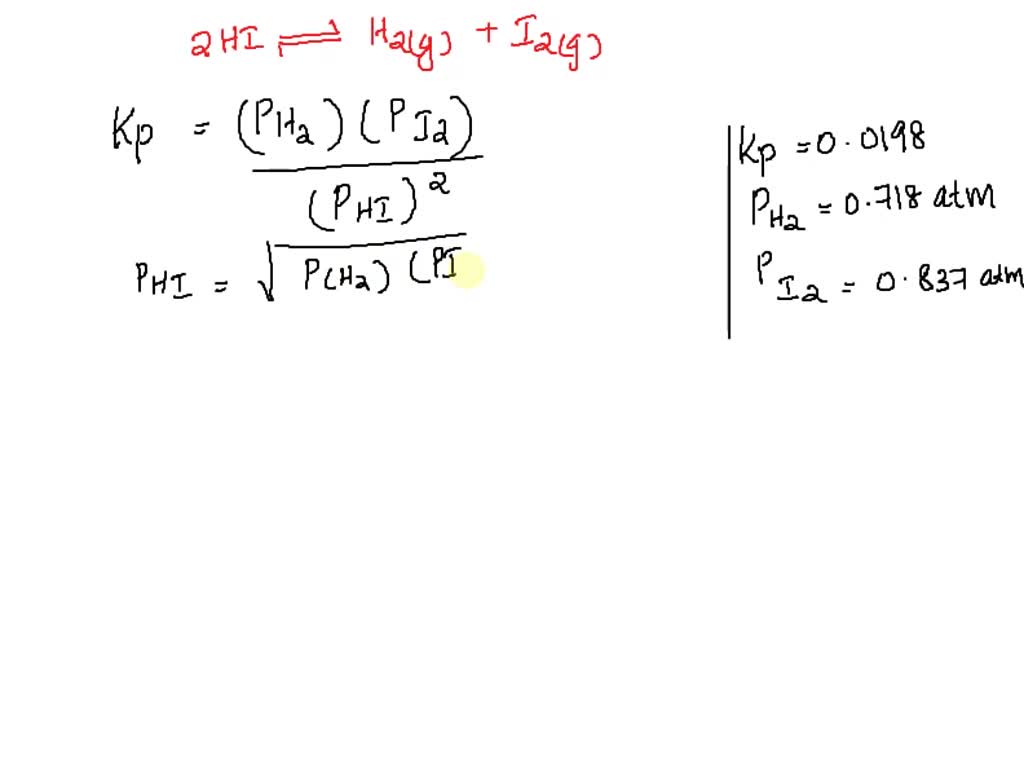 2HI ⇌ H2(g) + I2(g)
Kp = (PH2) (PI2)
(PHI)2
PHI = √ P(H2) (PI
Kp = 0.0198
PH2 = 0.718 atm
PI2 = 0.837 atm